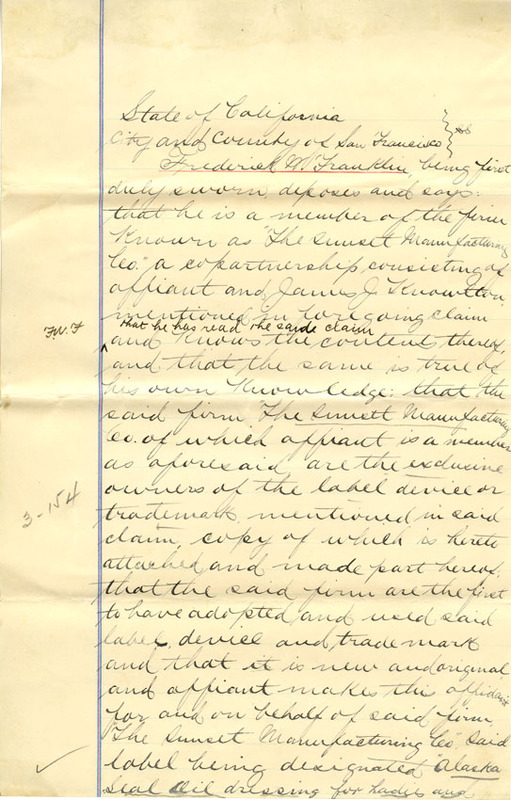 State of California
City and County of San Francisco } ss
Frederick W. Franklin, being first
duly sworn, deposes and says:
that he is a member of the firm
Known as "The Sunset Manufacturing
Co." a copartnership consisting of
affiant and James J. Knowlton
mentioned in foregoing claim
F.W.F that he has read the said claim
and Knows the content thereof,
and that the same is true of
his own Knowledge: that the
said firm The Sunset Manufacturing
Co. of which affiant is a member
as aforesaid, are the exclusive
owners of the label device or
3-154
trademark, mentioned in said
claim, copy of which is hereto
attached and made part hereof,
that the said firm are the first
to have adopted and used said
label, device and trademark
and that it is new and original,
and affiant makes this affidavit
for and on behalf of said firm,
"The Sunset Manufacturing Co", said
label being designated "Alaska
Seal Oil dressing for hadges and